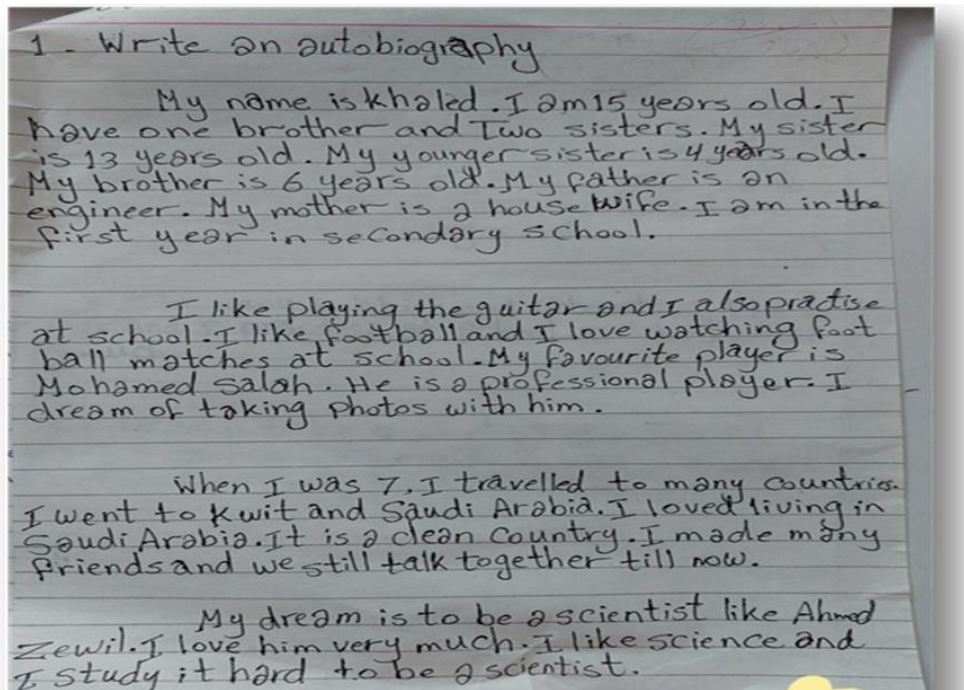 1 - Write an autobiography
My name is khaled. I am 15 years old. I
have one brother and Two sisters. My sister
is 13 years old. My younger sister is 4 years old.
My brother is 6 years old. My father is an
engineer. My mother is a house wife. I am in the
first year in secondary school.
I like playing the guitar and I also practise
at school. I like football and I love watching foot
ball matches at school. My favourite player is
Mohamed Salah. He is a professional player. I
dream of taking photos with him.
When I was 7, I travelled to many countries.
I went to Kwit and Saudi Arabia. I loved living in
Saudi Arabia. It is a clean country. I made many
friends and we still talk together till now.
My dream is to be a scientist like Ahmed
Zewil. I love him very much. I like science and
I study it hard to be a scientist.